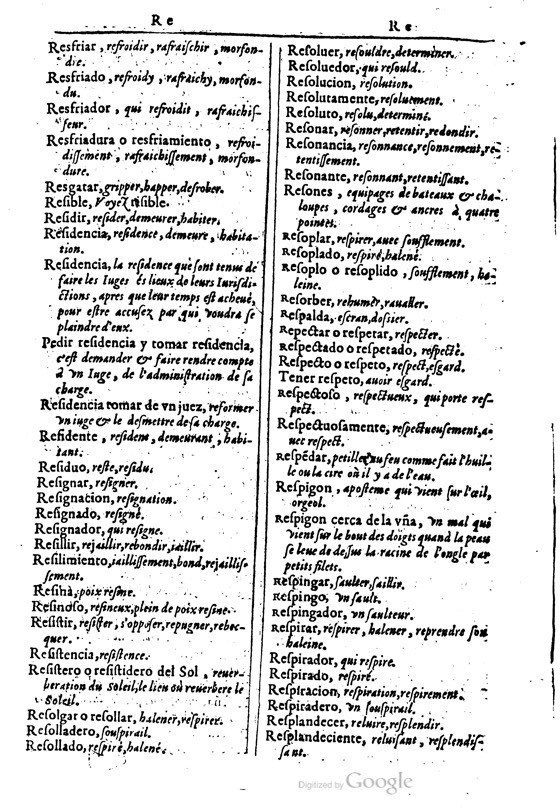 Re
Resfriar, refroidir, rafraischir, morfon-
die.
Resfriado, refroidy, rafraichy, morfon-
du.
Resfriador, qui refroidit, rafraichis-
seur.
Resfriadura o resfriamiento, refroi-
dissement, rafraichissement, morfon-
dure.
Resgatar, gripper, happer, desrober.
Resible, Voyez risible.
Residir, resider, demeurer, habiter.
Residencia, residence, demeure, habita-
tion.
Residencia, la residence que sont tenus de
faire les Iuges és lieux de leurs Iurisdi-
ctions, apres que leur temps est acheué,
pour estre accusez par qui voudra se
plaindre d'eux.
Pedir residencia y tomar residencia,
c'est demander & faire rendre compte
à vn Iuge, de l'administration de sa
charge.
Residencia tomar de vn juez, reformer
vn iuge & le desmettre de sa charge.
Residente, resident, demeurant, habi-
tant.
Residuo, reste, residu.
Resignar, resigner.
Resignacion, resignation.
Resignado, resigné.
Resignador, qui resigne.
Resillir, rejaillir, rebondir, iaillir.
Resilimiento, iaillissement, bond, rejaillis-
sement.
Resina, poix resine.
Resinoso, resineux, plein de poix resine.
Resistir, resister, s'opposer, repugner, rebec-
quer.
Resistencia, resistence.
Resistero o resistidero del Sol, reuer-
beration du Soleil, le lieu où reuerbere le
Soleil.
Resolgar o resollar, halener, respirer.
Resolladero, souspirail.
Resollado, respiré, halené.
Re
Resoluer, resouldre, determiner.
Resoluedor, qui resould.
Resolucion, resolution.
Resolutamente, resolutement.
Resoluto, resolu, determiné.
Resonar, resonner, retentir, redondir.
Resonancia, resonnance, resonnement, re-
tentissement.
Resonante, resonnant, retentissant.
Resones, equipages de bateaux & cha-
loupes, cordages & ancres à quatre
pointes.
Resoplar, respirer, auec soufflement.
Resoplado, respiré, halené.
Resoplo o resoplido, soufflement, ha-
leine.
Resorber, rehumer, raualler.
Respalda, escran, dossier.
Repectar o respetar, respecter.
Respectado o respetado, respecté.
Respecto o respeto, respect, esgard.
Tener respeto, auoir esgard.
Respectoso, respectueux, qui porte res-
pect.
Respectuosamente, respectueusement, a-
uec respect.
Respédar, petiller au feu comme fait l'huil-
le ou la cire où il y a de l'eau.
Respigon, aposteme qui vient sur l'œil,
orgeol.
Respigon cerca de la vña, vn mal qui
vient sur le bout des doigts quand la peau
se leue de dessus la racine de l'ongle par
petits filets.
Respingar, saulter, saillir.
Respingo, vn sault.
Respingador, vn saulteur.
Respirar, respirer, halener, reprendre son
haleine.
Respirador, qui respire.
Respirado, respiré.
Respiracion, respiration, respirement.
Respiradero, vn souspirail.
Resplandecer, reluire, resplendir.
Resplandeciente, reluisant, resplendis-
sant.
Digitized by Google